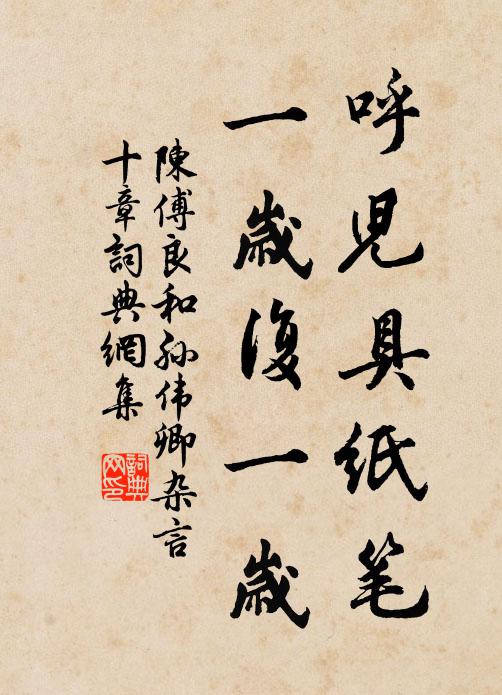 呼児具紙笔
一歲復一歲
陳傅良和孙伟卿杂言
十章詞典網集
詞典
网印